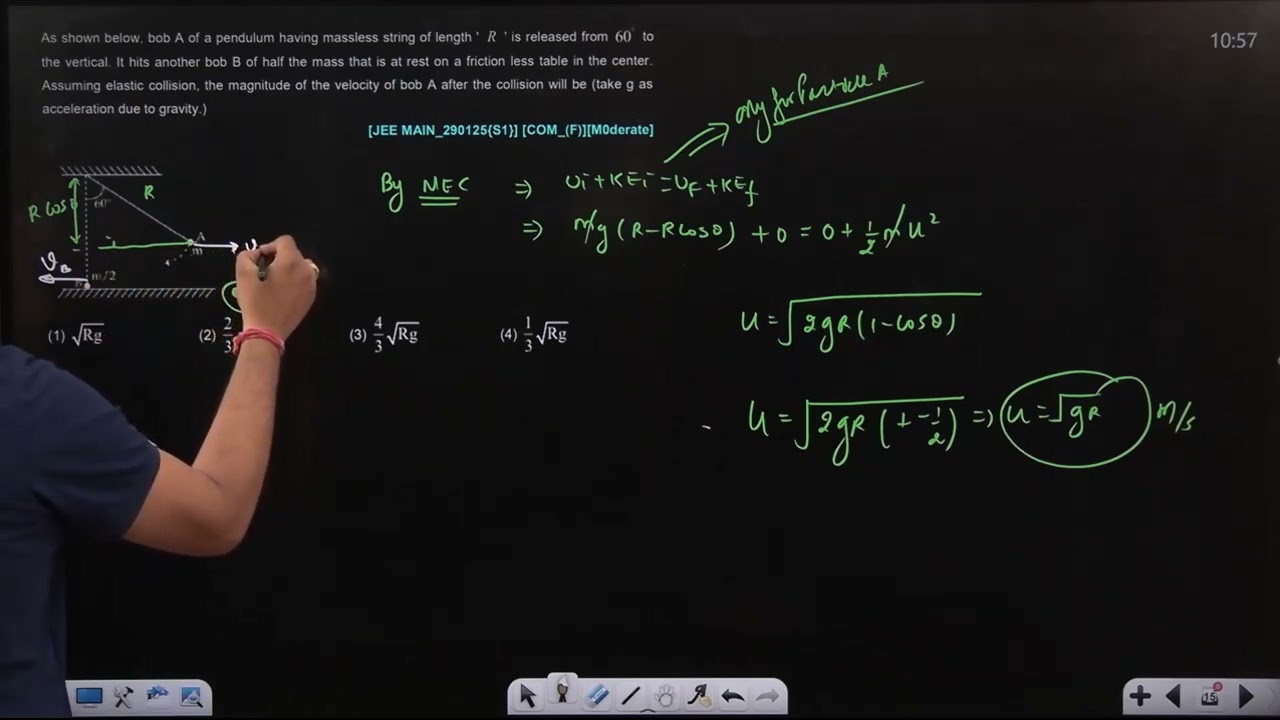 As shown below, bob A of a pendulum having massless string of length ' R ' is released from 60° to
the vertical. It hits another bob B of half the mass that is at rest on a friction less table in the center.
Assuming elastic collision, the magnitude of the velocity of bob A after the collision will be (take g as
acceleration due to gravity.)
[JEE MAIN_290125{S1}] [COM_(F)][M0derate]
10:57
only for Particle A
By MEC ⇒ Ui + KEi = UF + KEf
⇒ mg (R-Rcosθ) + 0 = 0 + 1/2 m u²
u = √2gR(1-cosθ)
u = √2gR (1 - 1/2) ⇒ u = √gR m/s
R cosθ
60°
R
A
m
VB
m/2
(1) √Rg
(2) 2/3
(3) 4/3 √Rg
(4) 1/3 √Rg
15